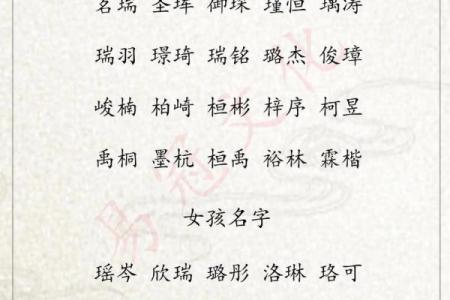 茗瑞 圣珲 御琛 瑾恒 瑀涛
瑞羽 璟琦 瑞铭 璐杰 俊璋
峻楠 柏崎 桓彬 梓序 柯昱
禹桐 墨杭 桓禹 裕林 霖楷
女孩名字
瑶岑 欣瑞 璐彤 洛琳 珞可
易冠文化